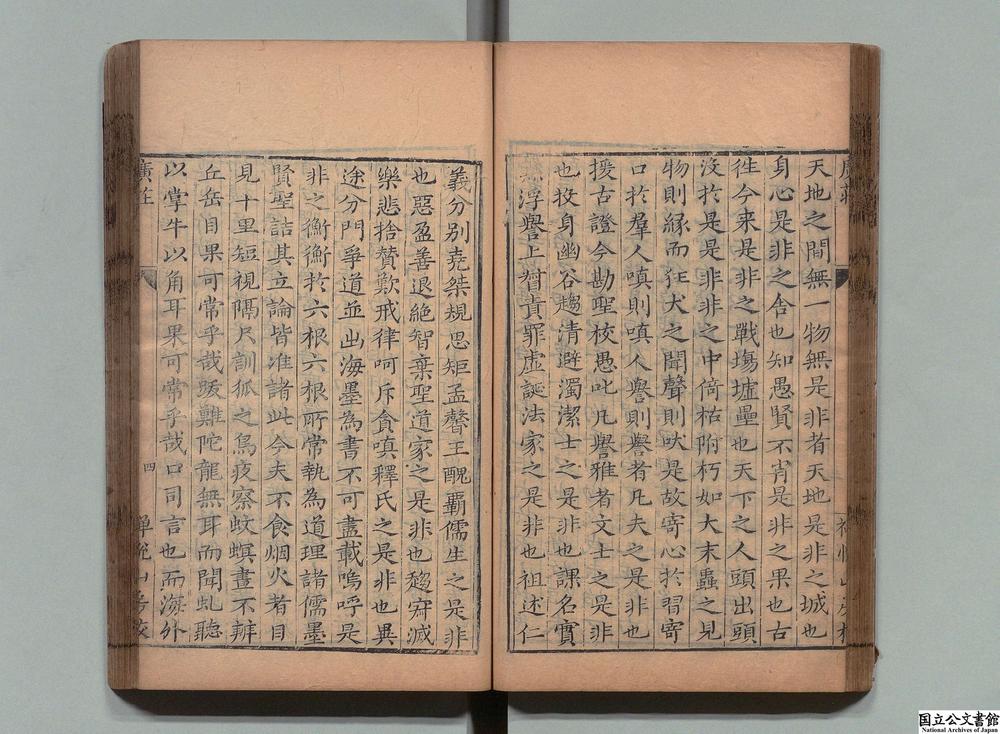 天地之間無一物無是非者天地是非之城也
身心是非之舍也知愚賢不肖是非之果也古
徃今来是非之戰塲墟壘也天下之人頭出頭
沒於是是非非之中倚枯附朽如大末蟲之見
物則縁而狂犬之聞聲則吠是故寄心於習寄
口於羣人嗔則嗔人譽則譽者凡夫之是非也
援古證今勘聖校愚叱凡譽雅者文士之是非
也投身幽谷趨清避濁潔士之是非也課名實
黜浮譽上督責罪虛誕法家之是非也祖述仁
義分別堯桀規思矩孟聲王醜覇儒生之是非
也惡盈善退絶智棄聖道家之是非也趨寂滅
樂悲捨贊歎戒律呵斥貪嗔釋氏之是非也異
途分門爭道並出海墨為書不可盡載嗚呼是
非之衡衡於六根六根所常執為道理諸儒墨
賢聖詰其立論皆准諸此今夫不食烟火者目
見十里短視隔尺訓狐之鳥夜察蚊螟晝不辨
丘岳目果可常乎哉跋難陀龍無耳而聞虬聽
以掌牛以角耳果可常乎哉口司言也而海外
廣莊
四
国立公文書館
National Archives of Japan